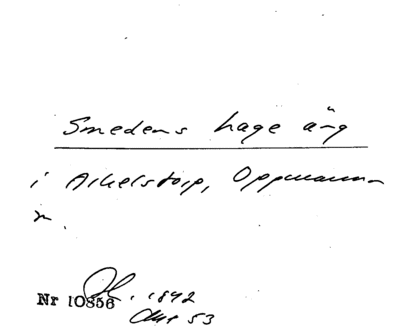 Smedens hage äng
i Arkelstorp, Oppmanna-
n.
Nr 10856 . 1892
53